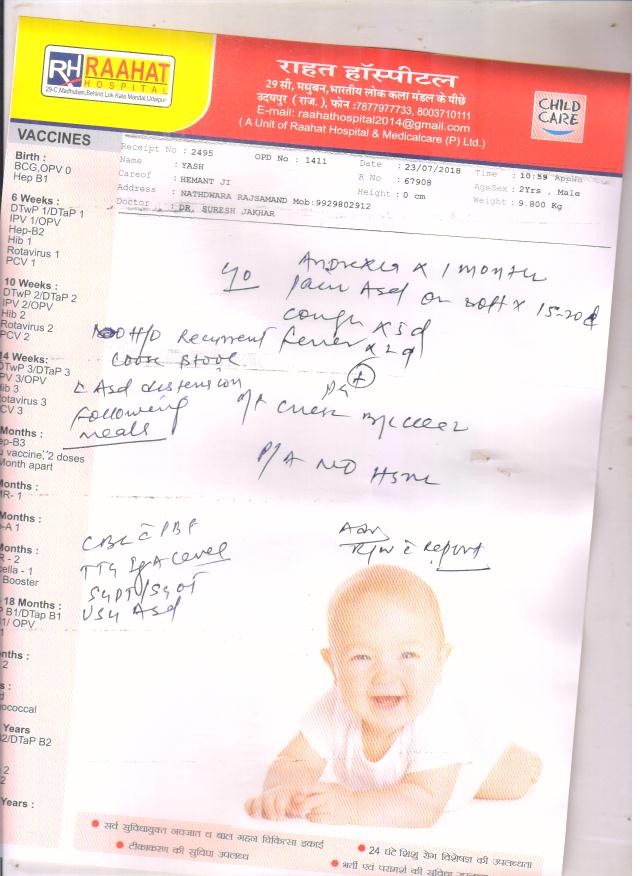 RH RAAHAT
HOSPITAL
29-C, Madhuban, Behind Lok Kala Mandal, Udaipur
राहत हॉस्पीटल
29 सी, मधुबन, भारतीय लोक कला मंडल के पीछे
उदयपुर ( राज. ), फोन :7877977733, 8003710111
E-mail: raahathospital2014@gmail.com
( A Unit of Raahat Hospital & Medicalcare (P) Ltd.)
CHILD
CARE
Receipt No : 2495 OPD No : 1411 Date : 23/07/2018 Time : 10:59
Name : YASH R No : 67908 AgeSex : 2Yrs , Male
Careof : HEMANT JI Height : 0 cm Weight : 9.800 Kg
Address : NATHDWARA RAJSAMAND Mob:9929802912
Doctor : DR. SURESH JAKHAR
VACCINES
Birth :
BCG,OPV 0
Hep B1
6 Weeks :
DTwP 1/DTaP 1
IPV 1/OPV
Hep-B2
Hib 1
Rotavirus 1
PCV 1
10 Weeks :
DTwP 2/DTaP 2
IPV 2/OPV
Hib 2
Rotavirus 2
PCV 2
14 Weeks:
DTwP 3/DTaP 3
PV 3/OPV
ib 3
otavirus 3
CV 3
Months :
ep-B3
vaccine, 2 doses
Month apart
onths :
R- 1
onths :
-A 1
onths :
R - 2
cella - 1
Booster
18 Months :
B1/DTap B1
1/ OPV
1
onths :
2
s :
ococcal
Years
2/DTaP B2
2
2
Years :
Anorexia x 1 month
pain Abd on & off x 15-20 d
cough x 5 d
fever x 2 d
H/o Recurrent
Loose stool
c Abd distension
following
meals
chest B/L clear
P/A NO HSM
CBC c PBF
TTG IgA Level
SGPT/SGOT
USG Abd
Adv
R/w c Report
सर्व सुविधायुक्त नवजात व बाल गहन चिकित्सा इकाई
टीकाकरण की सुविधा उपलब्ध
24 घंटे शिशु रोग विशेषज्ञ की उपलब्धता
भर्ती एवं परामर्श की सुविधा